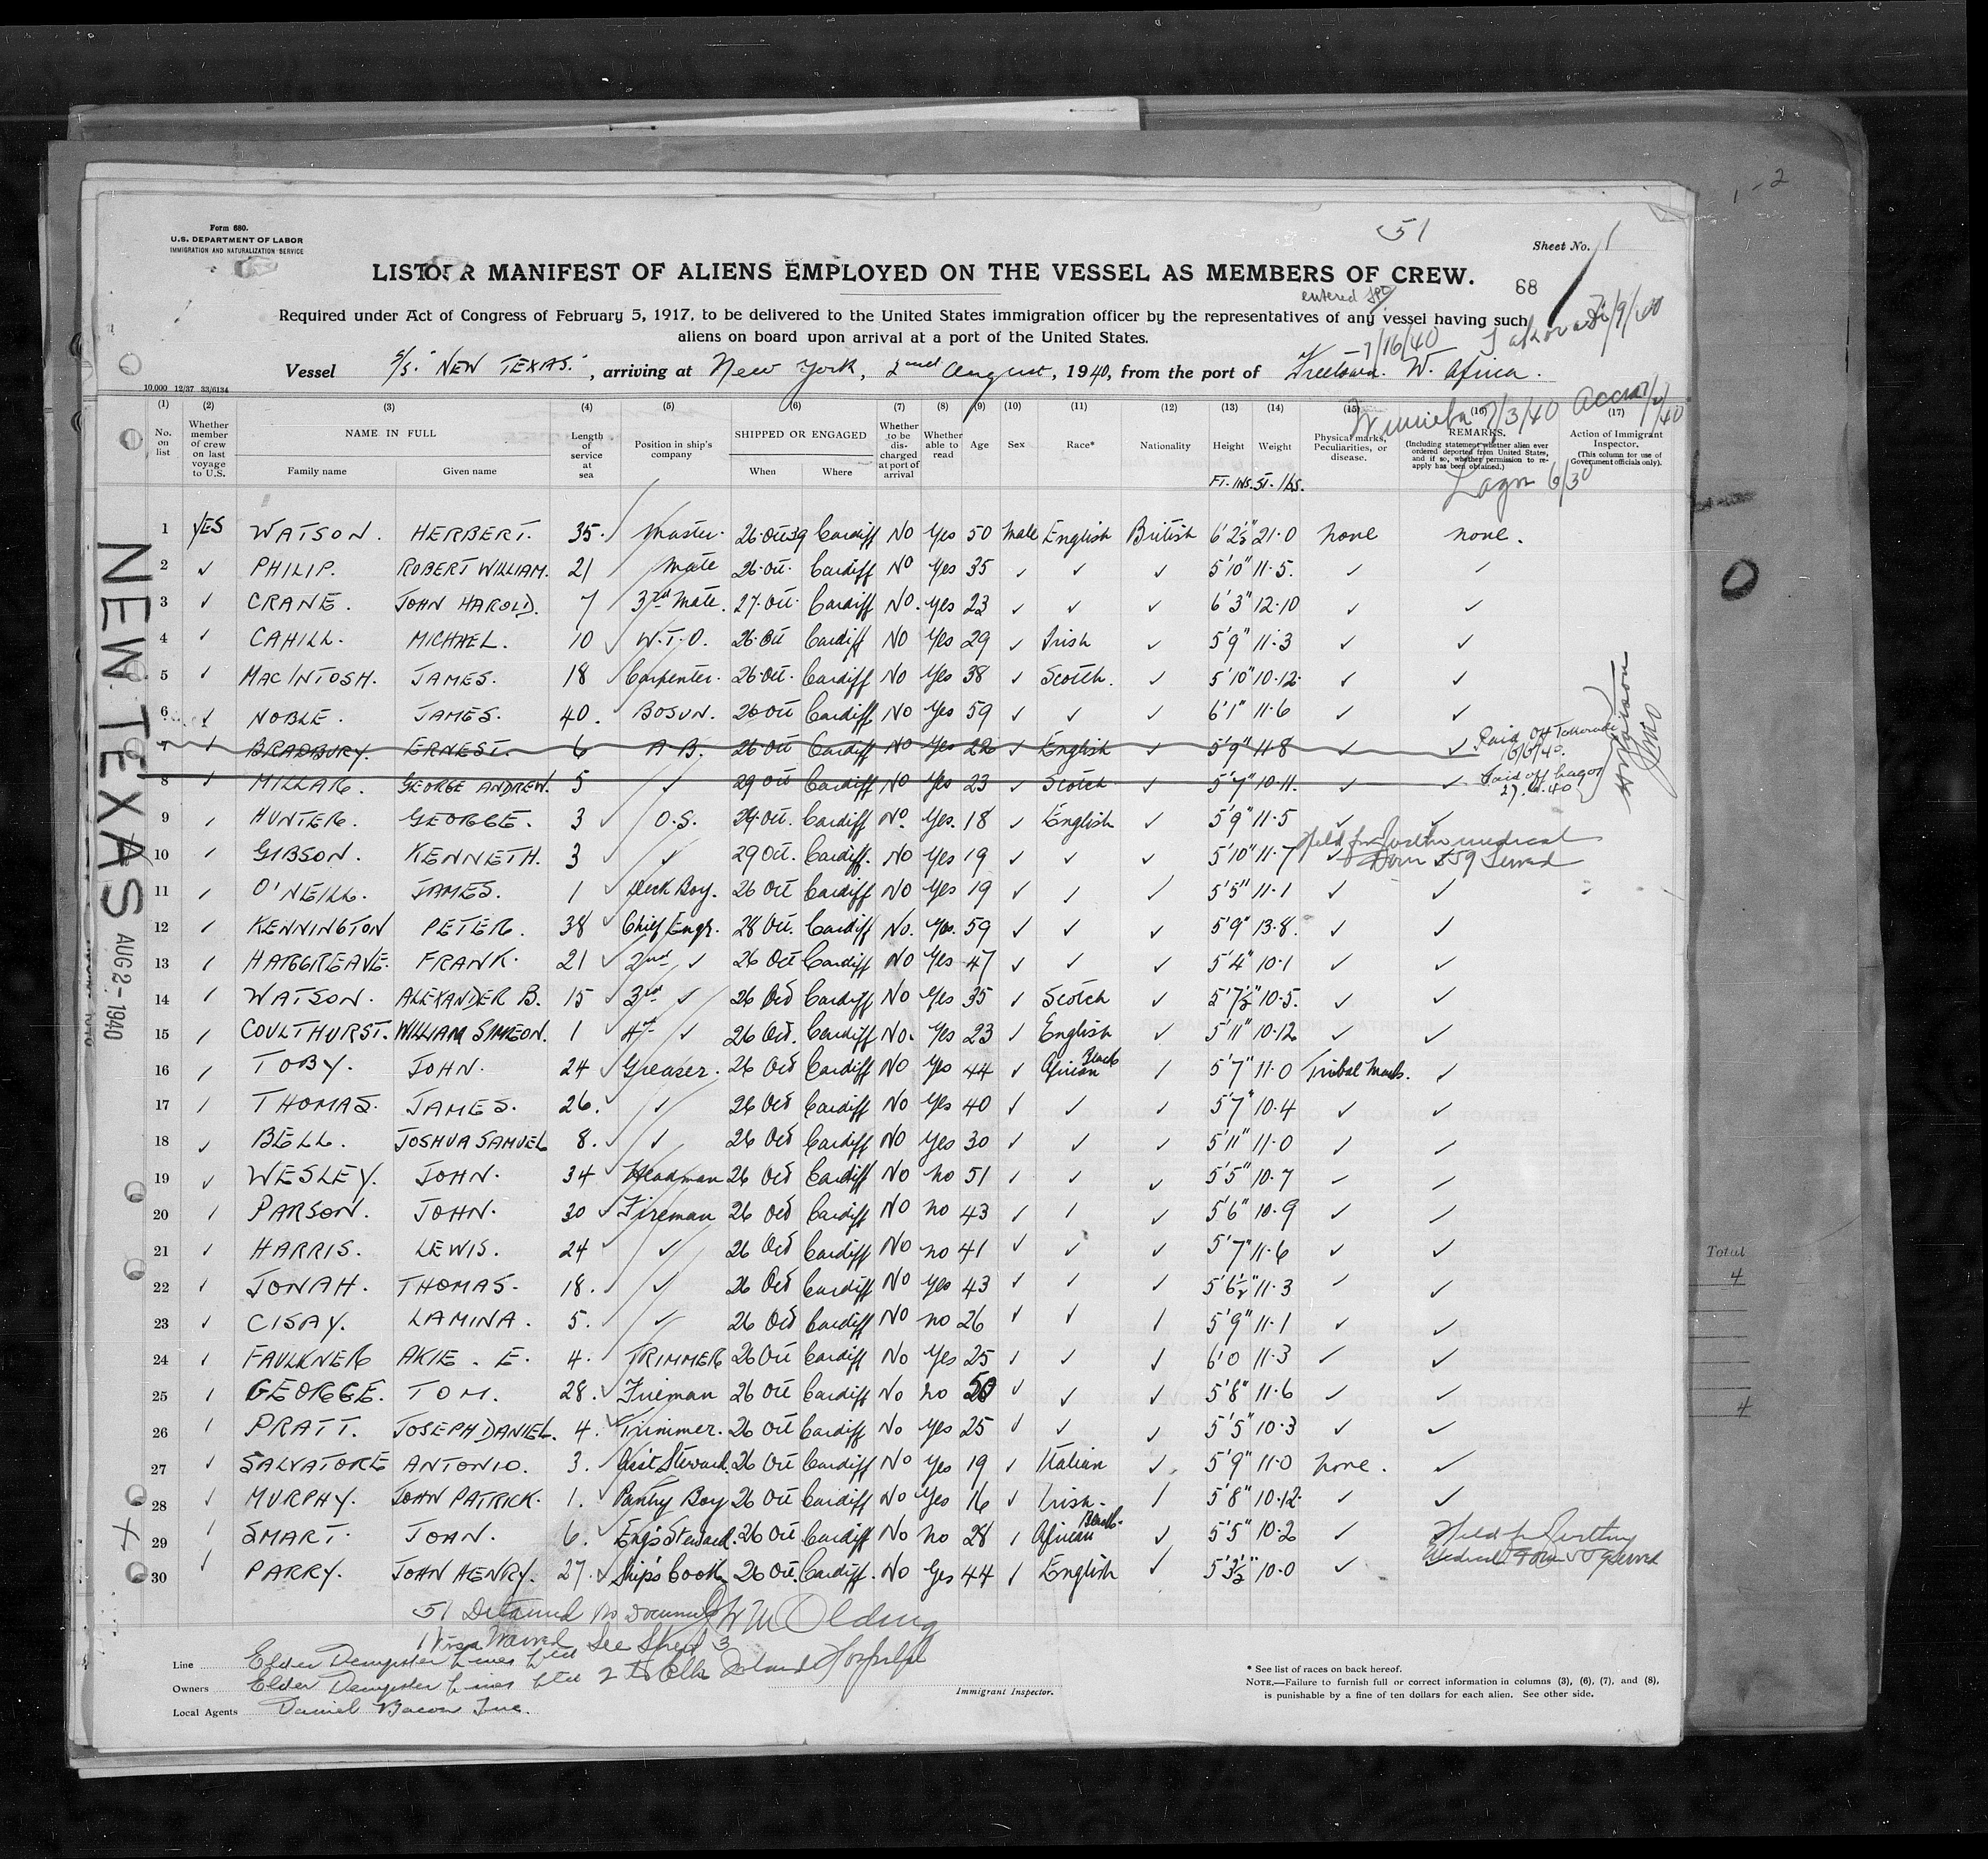 1 - 2
51
Form 680.
U.S. DEPARTMENT OF LABOR
IMMIGRATION AND NATURALIZATION SERVICE
Sheet No. 1
LIST OR MANIFEST OF ALIENS EMPLOYED ON THE VESSEL AS MEMBERS OF CREW.
68
entered
Required under Act of Congress of February 5, 1917, to be delivered to the United States immigration officer by the representatives of any vessel having such
aliens on board upon arrival at a port of the United States.
7/16/40
Vessel S/S. "NEW TEXAS.", arriving at New York, 2nd August, 1940, from the port of Freetown. W. Africa.
10,000 12/37 33/6134
Winneba 7/3/40 Accra
Lagos 6/30
(1) (2) (3) (4) (5) (6) (7) (8) (9) (10) (11) (12) (13) (14) (15) (16) (17)
No. on list
Whether member of crew on last voyage to U.S.
NAME IN FULL
Family name Given name
Length of service at sea
Position in ship's company
SHIPPED OR ENGAGED
When Where
Whether to be discharged at port of arrival
Whether able to read
Age Sex Race* Nationality Height Weight
Physical marks, Peculiarities, or disease.
REMARKS.
(Including statement whether alien ever ordered deported from United States, and if so, whether permission to reapply has been obtained.)
Action of Immigrant Inspector.
(This column for use of Government officials only).
FT. INS. ST. lbs.
1 YES WATSON. HERBERT. 35. Master. 26 Oct 39 Cardiff NO Yes 50 Male English British 6' 2½" 21·0 None none.
2 ✓ PHILIP. ROBERT WILLIAM. 21 Mate 26·Oct. Cardiff NO Yes 35 ✓ ✓ ✓ 5'10" 11·5. ✓ ✓
3 ✓ CRANE. JOHN HAROLD. 7 3rd Mate. 27·Oct. Cardiff NO. Yes 23 ✓ ✓ ✓ 6'3" 12·10 ✓ ✓
4 ✓ CAHILL. MICHAEL. 10 ✓ W.T.O. 26·Oct Cardiff NO Yes 29 ✓ Irish ✓ 5'9" 11·3 ✓ ✓
5 ✓ MACINTOSH. JAMES. 18 ✓ Carpenter. 26·Oct. Cardiff NO Yes 38 ✓ Scotch. ✓ 5'10" 10·12 ✓ ✓
6 ✓ NOBLE. JAMES. 40. BOSUN. 26 Oct Cardiff NO Yes 59 ✓ ✓ ✓ 6'1" 11·6 ✓ ✓
7 ✓ BRADBURY. ERNEST. 6 A B. 26 Oct Cardiff NO Yes 22 ✓ English ✓ 5'9" 11·8 ✓ ✓ Paid Off
8 ✓ MILLAR. GEORGE ANDREW. 5 ✓ 29 Oct Cardiff NO Yes 23 ✓ Scotch ✓ 5'7" 10·11. ✓ ✓ Paid off Lagos
9 ✓ HUNTER. GEORGE. 3 ✓ O.S. 29 Oct. Cardiff NO. Yes. 18 ✓ English ✓ 5'9" 11·5 ✓ ✓
Held for further medical
10 ✓ GIBSON. KENNETH. 3 ✓ ✓ 29 Oct. Cardiff. NO Yes 19 ✓ ✓ ✓ 5'10" 11·7 ✓ Form 559 Served
11 ✓ O'NEILL. JAMES. 1 ✓ Deck Boy. 26 Oct Cardiff NO Yes 19 ✓ ✓ ✓ 5'5" 11·1 ✓ ✓
12 ✓ KENNINGTON PETER. 38 ✓ Chief Engr. 28 Oct. Cardiff No. Yes. 59 ✓ ✓ ✓ 5'9" 13·8. ✓ ✓
13 ✓ HARGREAVE. FRANK. 21 ✓ 2nd ✓ 26 Oct Cardiff NO Yes 47 ✓ ✓ ✓ 5'4" 10·1 ✓ ✓
14 ✓ WATSON. ALEXANDER B. 15 ✓ 3rd ✓ 26 Oct Cardiff NO Yes 35 ✓ Scotch ✓ 5'7½" 10·5. ✓ ✓
15 ✓ COULTHURST. WILLIAM SIMEON. 1 ✓ 4th ✓ 26 Oct. Cardiff NO. Yes 23 ✓ English ✓ 5'11" 10·12 ✓ ✓
16 ✓ TOBY. JOHN. 24 ✓ Greaser. 26 Oct Cardiff NO Yes 44 ✓ African Black ✓ 5'7" 11·0 Tribal Marks. ✓
17 ✓ THOMAS. JAMES. 26. ✓ 26 Oct Cardiff NO Yes 40 ✓ ✓ ✓ 5'7" 10·4 ✓ ✓
18 ✓ BELL. JOSHUA SAMUEL 8. ✓ ✓ 26 Oct Cardiff NO Yes 30 ✓ ✓ ✓ 5'11" 11·0 ✓ ✓
19 ✓ WESLEY. JOHN. 34 ✓ Headman 26 Oct Cardiff NO no 51 ✓ ✓ ✓ 5'5" 10·7 ✓ ✓
20 ✓ PARSON. JOHN. 30 ✓ Fireman 26 Oct Cardiff NO no 43 ✓ ✓ ✓ 5'6" 10·9 ✓ ✓
21 ✓ HARRIS. LEWIS. 24 ✓ ✓ 26 Oct Cardiff NO no 41 ✓ ✓ ✓ 5'7" 11·6 ✓ ✓
22 ✓ JONAH. THOMAS. 18. ✓ ✓ 26 Oct Cardiff NO Yes 43 ✓ ✓ ✓ 5'6½" 11·3 ✓ ✓
23 ✓ CISAY. LAMINA. 5. ✓ ✓ 26 Oct Cardiff NO no 26 ✓ ✓ ✓ 5'9" 11·1 ✓ ✓
24 ✓ FAULKNER AKIE. E. 4. ✓ TRIMMER 26 Oct Cardiff No Yes 25 ✓ ✓ ✓ 6'0 11·3 ✓ ✓
25 ✓ GEORGE. TOM. 28. ✓ Fireman 26 Oct Cardiff No no 50 ✓ ✓ ✓ 5'8" 11·6 ✓ ✓
26 ✓ PRATT. JOSEPH DANIEL. 4. ✓ Trimmer. 26 Oct Cardiff No Yes 25 ✓ ✓ ✓ 5'5" 10·3 ✓ ✓
27 ✓ SALVATORE ANTONIO. 3. ✓ Asst Steward. 26 Oct Cardiff NO Yes 19 ✓ Italian ✓ 5'9" 11·0 none. ✓
28 ✓ MURPHY. JOHN PATRICK. 1. ✓ Pantry Boy 26 Oct Cardiff No Yes 16 ✓ Irish. ✓ 5'8" 10·12 ✓ ✓
29 ✓ SMART. JOHN. 6. ✓ Eng's Steward. 26 Oct Cardiff No no 28 ✓ African Black. ✓ 5'5" 10·2 ✓ Held for further
30 ✓ PARRY. JOHN HENRY. 27. ✓ Ship's Cook 26 Oct. Cardiff. No Yes 44 ✓ English ✓ 5'3½" 10·0 ✓ Medical Form 559 Served
NEW TEXAS AUG 2 - 1940
Total
4
4
51 Detained No Documents
1 Visa Waived See Sheet 3
2 to Ellis Island Hospital
Line Elder Dempster Lines Ltd
Owners Elder Dempster Lines Ltd
Local Agents Daniel Bacon Inc.
Immigrant Inspector.
* See list of races on back hereof.
NOTE.—Failure to furnish full or correct information in columns (3), (6), (7), and (8),
is punishable by a fine of ten dollars for each alien. See other side.